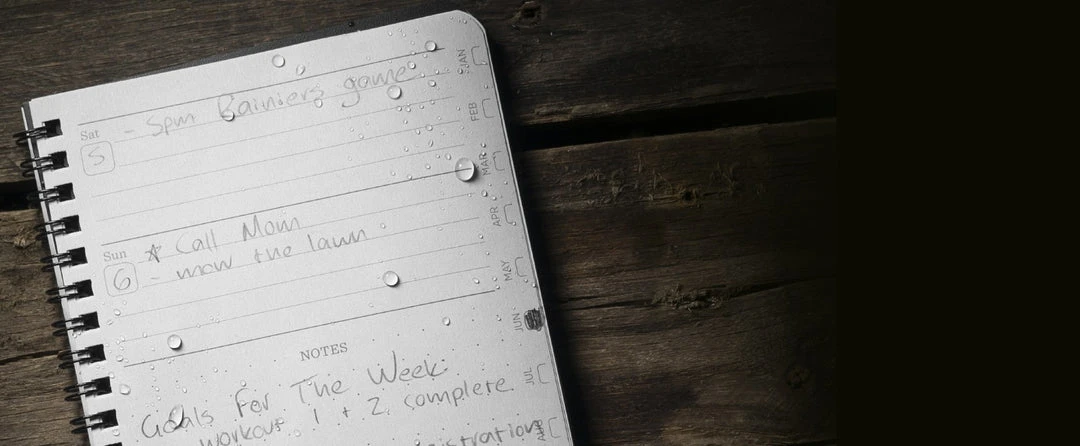 Sat
5
- 5pm Rainiers game
Sun
6
* Call Mom
- mow the lawn
NOTES
Goals For The Week
workout 1 + 2 complete
JAN
FEB
MAR
APR
MAY
JUN
JUL
AUG